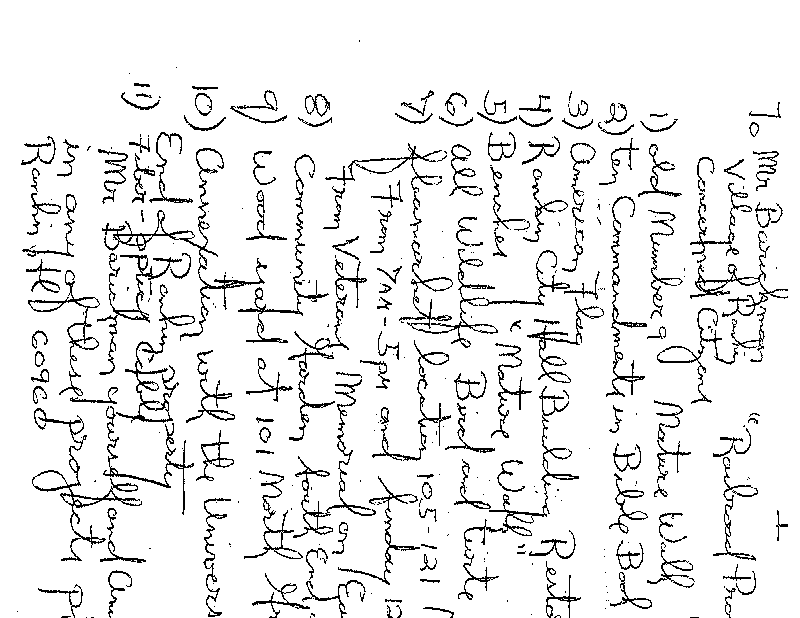 To Mr Barickman
Village of Rankin "Railroad Pro
Concerned Citizens
1) old Number 9 Nature Walk
2) Ten Commandments in Bible Book
3) American Flag
4) Rankin City Hall Building Resto
5) Benches "Nature Walk"
6) all Wildlife Bird and turtle
7) location 105-121
From 7AM-5pm and Sunday 12
From Veterans Memorial on Ea
8) Community Garden South End
9) Wood yard at 101 North
10) Annexation with the Univers
End of Rankin property
11) Fiber-optic
Mr Barickman yourself and
in any of these projects
Rankin (Il) 60960